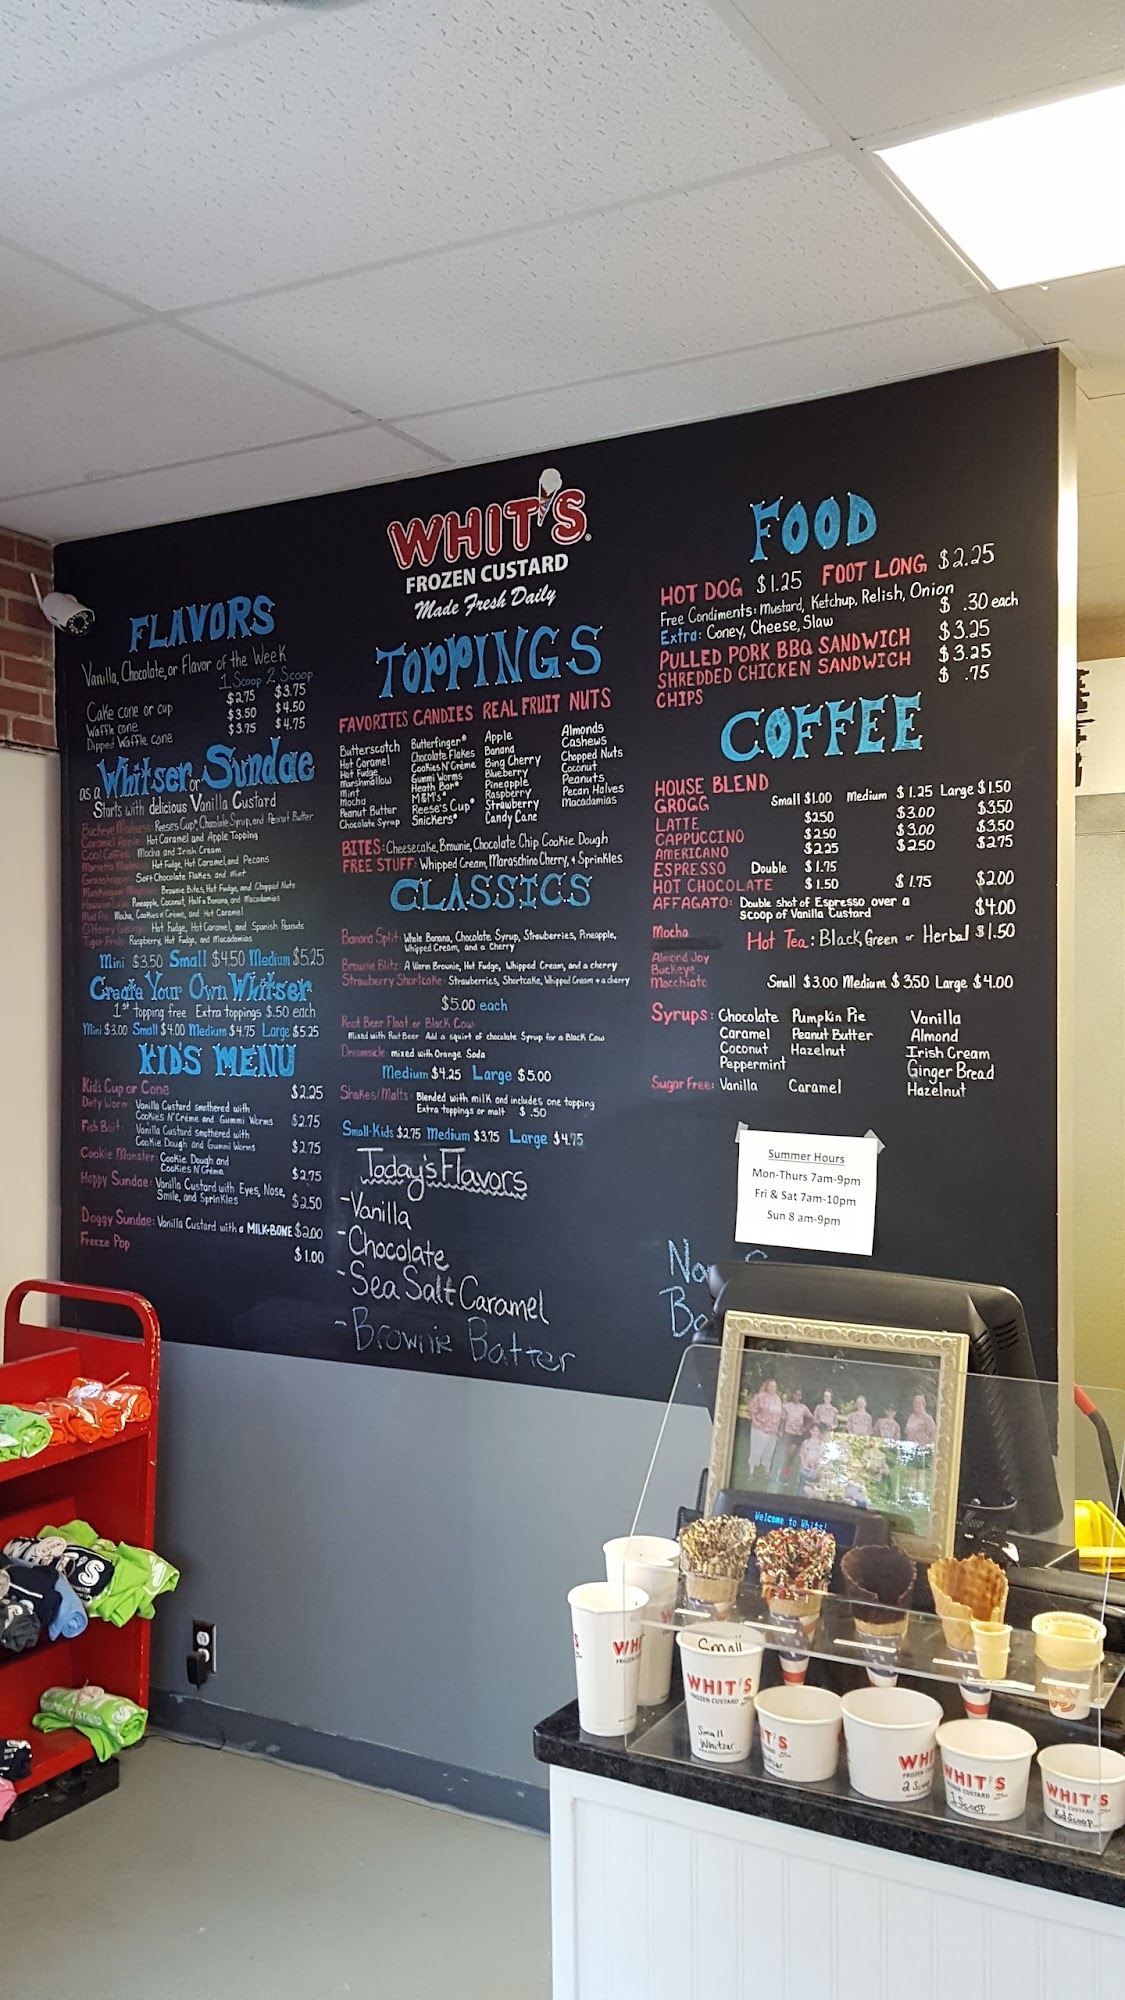 WHIT'S
FROZEN CUSTARD
Made Fresh Daily
FLAVORS
Vanilla, Chocolate, or Flavor of the Week
1 Scoop 2 Scoop
Cake cone or cup $2.75 $3.75
Waffle cone $3.50 $4.50
Dipped Waffle cone $3.75 $4.75
as a Whitser or Sundae
Starts with delicious Vanilla Custard
Buckeye Madness: Reese's Cup®, Chocolate Syrup, and Peanut Butter
Caramel Apple: Hot Caramel and Apple Topping
Cool Coffee: Mocha and Irish Cream
Marietta Madness: Hot Fudge, Hot Caramel, and Pecans
Grasshopper: Soft Chocolate Flakes and Mint
Brownie Bites, Hot Fudge, and Chopped Nuts
Pineapple, Coconut, Half a Banana, and Macadamias
Mud Pie: Mocha, Cookies n' Créme, and Hot Caramel
Hot Fudge, Hot Caramel, and Spanish Peanuts
Tiger Pride: Raspberry, Hot Fudge, and Macadamias
Mini $3.50 Small $4.50 Medium $5.25
Create Your Own Whitser
1st topping free Extra toppings $.50 each
Mini $3.00 Small $4.00 Medium $4.75 Large $5.25
KID'S MENU
Kid's Cup or Cone $2.25
Dirty Worm: Vanilla Custard smothered with
Cookies N' Créme and Gummi Worms $2.75
Fish Bait: Vanilla Custard smothered with
Cookie Dough and Gummi Worms $2.75
Cookie Monster: Cookie Dough and
Cookies N' Créme $2.75
Happy Sundae: Vanilla Custard with Eyes, Nose,
Smile, and Sprinkles $2.50
Doggy Sundae: Vanilla Custard with a MILK-BONE $2.00
Freeze Pop $1.00
TOPPINGS
FAVORITES CANDIES REAL FRUIT NUTS
Butterscotch
Hot Caramel
Hot Fudge
Marshmallow
Mint
Mocha
Peanut Butter
Chocolate Syrup
Butterfinger®
Chocolate Flakes
Cookies N' Créme
Gummi Worms
Heath Bar®
M&M's®
Reese's Cup®
Snickers®
Apple
Banana
Bing Cherry
Blueberry
Pineapple
Raspberry
Strawberry
Candy Cane
Almonds
Cashews
Chopped Nuts
Coconut
Peanuts
Pecan Halves
Macadamias
BITES: Cheesecake, Brownie, Chocolate Chip Cookie Dough
FREE STUFF: Whipped Cream, Maraschino Cherry, + Sprinkles
CLASSICS
Banana Split: Whole Banana, Chocolate Syrup, Strawberries, Pineapple,
Whipped Cream, and a Cherry
Brownie Blitz: A Warm Brownie, Hot Fudge, Whipped Cream, and a cherry
Strawberry Shortcake: Strawberries, Shortcake, Whipped Cream + a cherry
$5.00 each
Root Beer Float or Black Cow:
Mixed with Root Beer Add a squirt of chocolate Syrup for a Black Cow
Dreamsicle: mixed with Orange Soda
Medium $4.25 Large $5.00
Shakes/Malts: Blended with milk and includes one topping
Extra toppings or malt $ .50
Small-Kids $2.75 Medium $3.75 Large $4.75
Today's Flavors
-Vanilla
-Chocolate
-Sea Salt Caramel
-Brownie Batter
FOOD
HOT DOG $1.25 FOOT LONG $2.25
Free Condiments: Mustard, Ketchup, Relish, Onion
Extra: Coney, Cheese, Slaw $ .30 each
PULLED PORK BBQ SANDWICH $3.25
SHREDDED CHICKEN SANDWICH $3.25
CHIPS $ .75
COFFEE
HOUSE BLEND Small $1.00 Medium $1.25 Large $1.50
GROGG
LATTE $2.50 $3.00 $3.50
CAPPUCCINO $2.50 $3.00 $3.50
AMERICANO $2.25 $2.50 $2.75
ESPRESSO Double $1.75
HOT CHOCOLATE $1.50 $1.75 $2.00
AFFAGATO: Double shot of Espresso over a
scoop of Vanilla Custard $4.00
Mocha
Hot Tea: Black, Green or Herbal $1.50
Almond Joy
Buckeye
Macchiato Small $3.00 Medium $3.50 Large $4.00
Syrups: Chocolate Pumpkin Pie Vanilla
Caramel Peanut Butter Almond
Coconut Hazelnut Irish Cream
Peppermint Ginger Bread
Sugar Free: Vanilla Caramel Hazelnut
Summer Hours
Mon-Thurs 7am-9pm
Fri & Sat 7am-10pm
Sun 8 am-9pm
Welcome to Whits!
Small
WHIT'S
FROZEN CUSTARD
Small
Whitser
WHIT'S
2 Scoop
WHIT'S
1 Scoop
WHIT'S
Kid Scoop